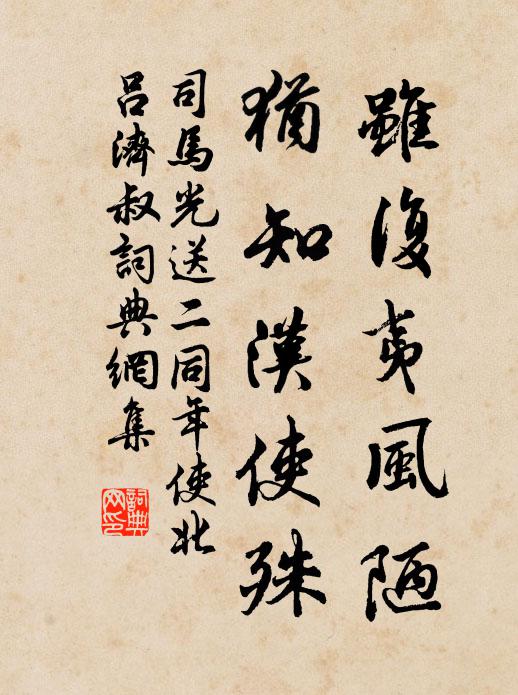 雖復夷風陋
猶知漢使殊
司馬光送二同年使北
呂濟叔詞典網集
詞典網印